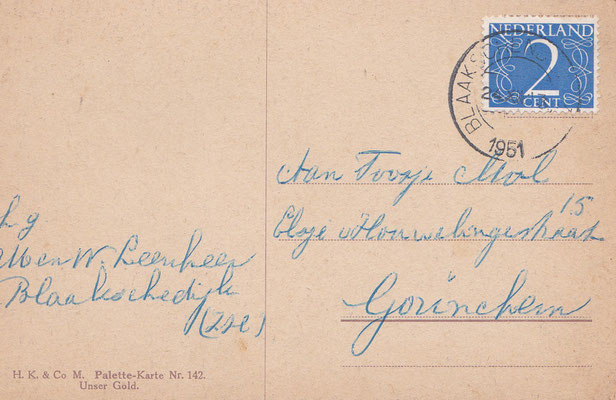 NEDERLAND
2
CENT
BLAAKS
1951
Aan Toosje Mol
15
Elsje v Houwelingestraat
Gorinchem
W. Leenheer
Blaakschedijk
H. K. & Co M. Palette-Karte Nr. 142.
Unser Gold.